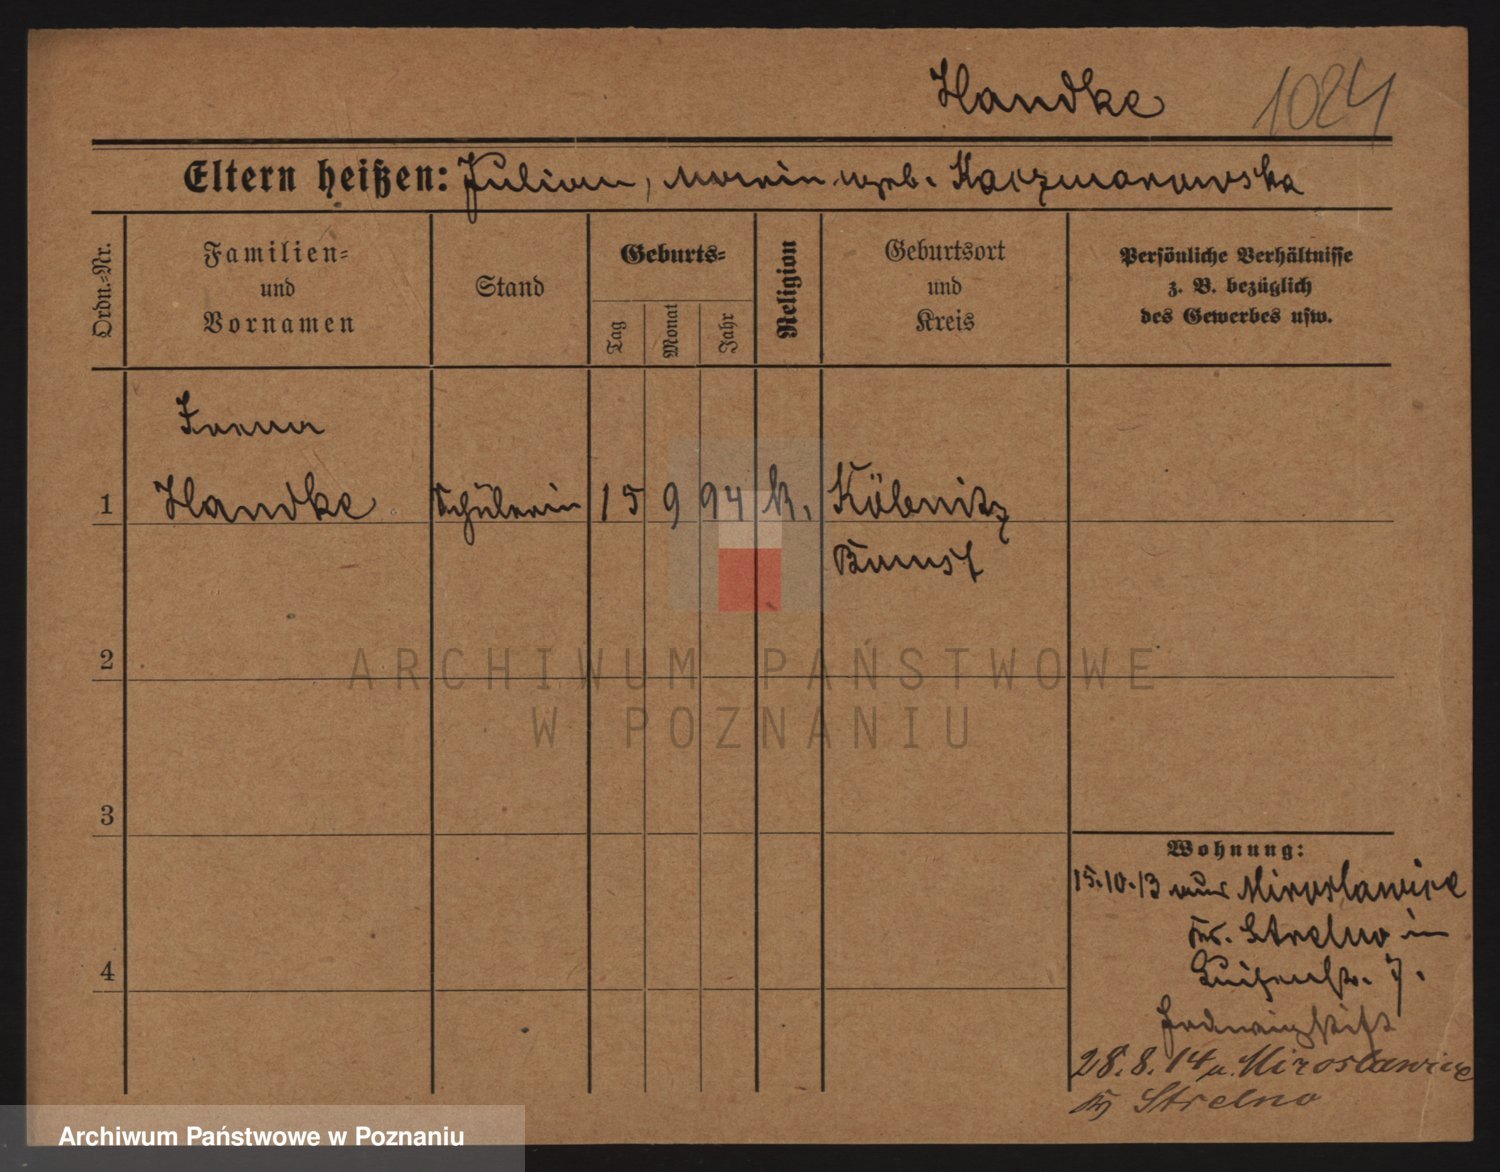 Handke 1024
Eltern heißen: Julian, Maria geb. Kaczmarowska
Ordn.-Nr.
Familien-
und
Vornamen
Stand
Geburts-
Tag
Monat
Jahr
Religion
Geburtsort
und
Kreis
Persönliche Verhältnisse
z. B. bezüglich
des Gewerbes usw.
Irena
1 Handke Schülerin 15 9 94 k. Köbnitz
Bomst
2
3
4
Wohnung:
15.10.13 aus Miroslawice
Kr. Strelno in
Luisenstr. 7.
Hedwigstift
28.8.14 n. Miroslawice
Kr Strelno
ARCHIWUM PAŃSTWOWE
W POZNANIU
Archiwum Państwowe w Poznaniu